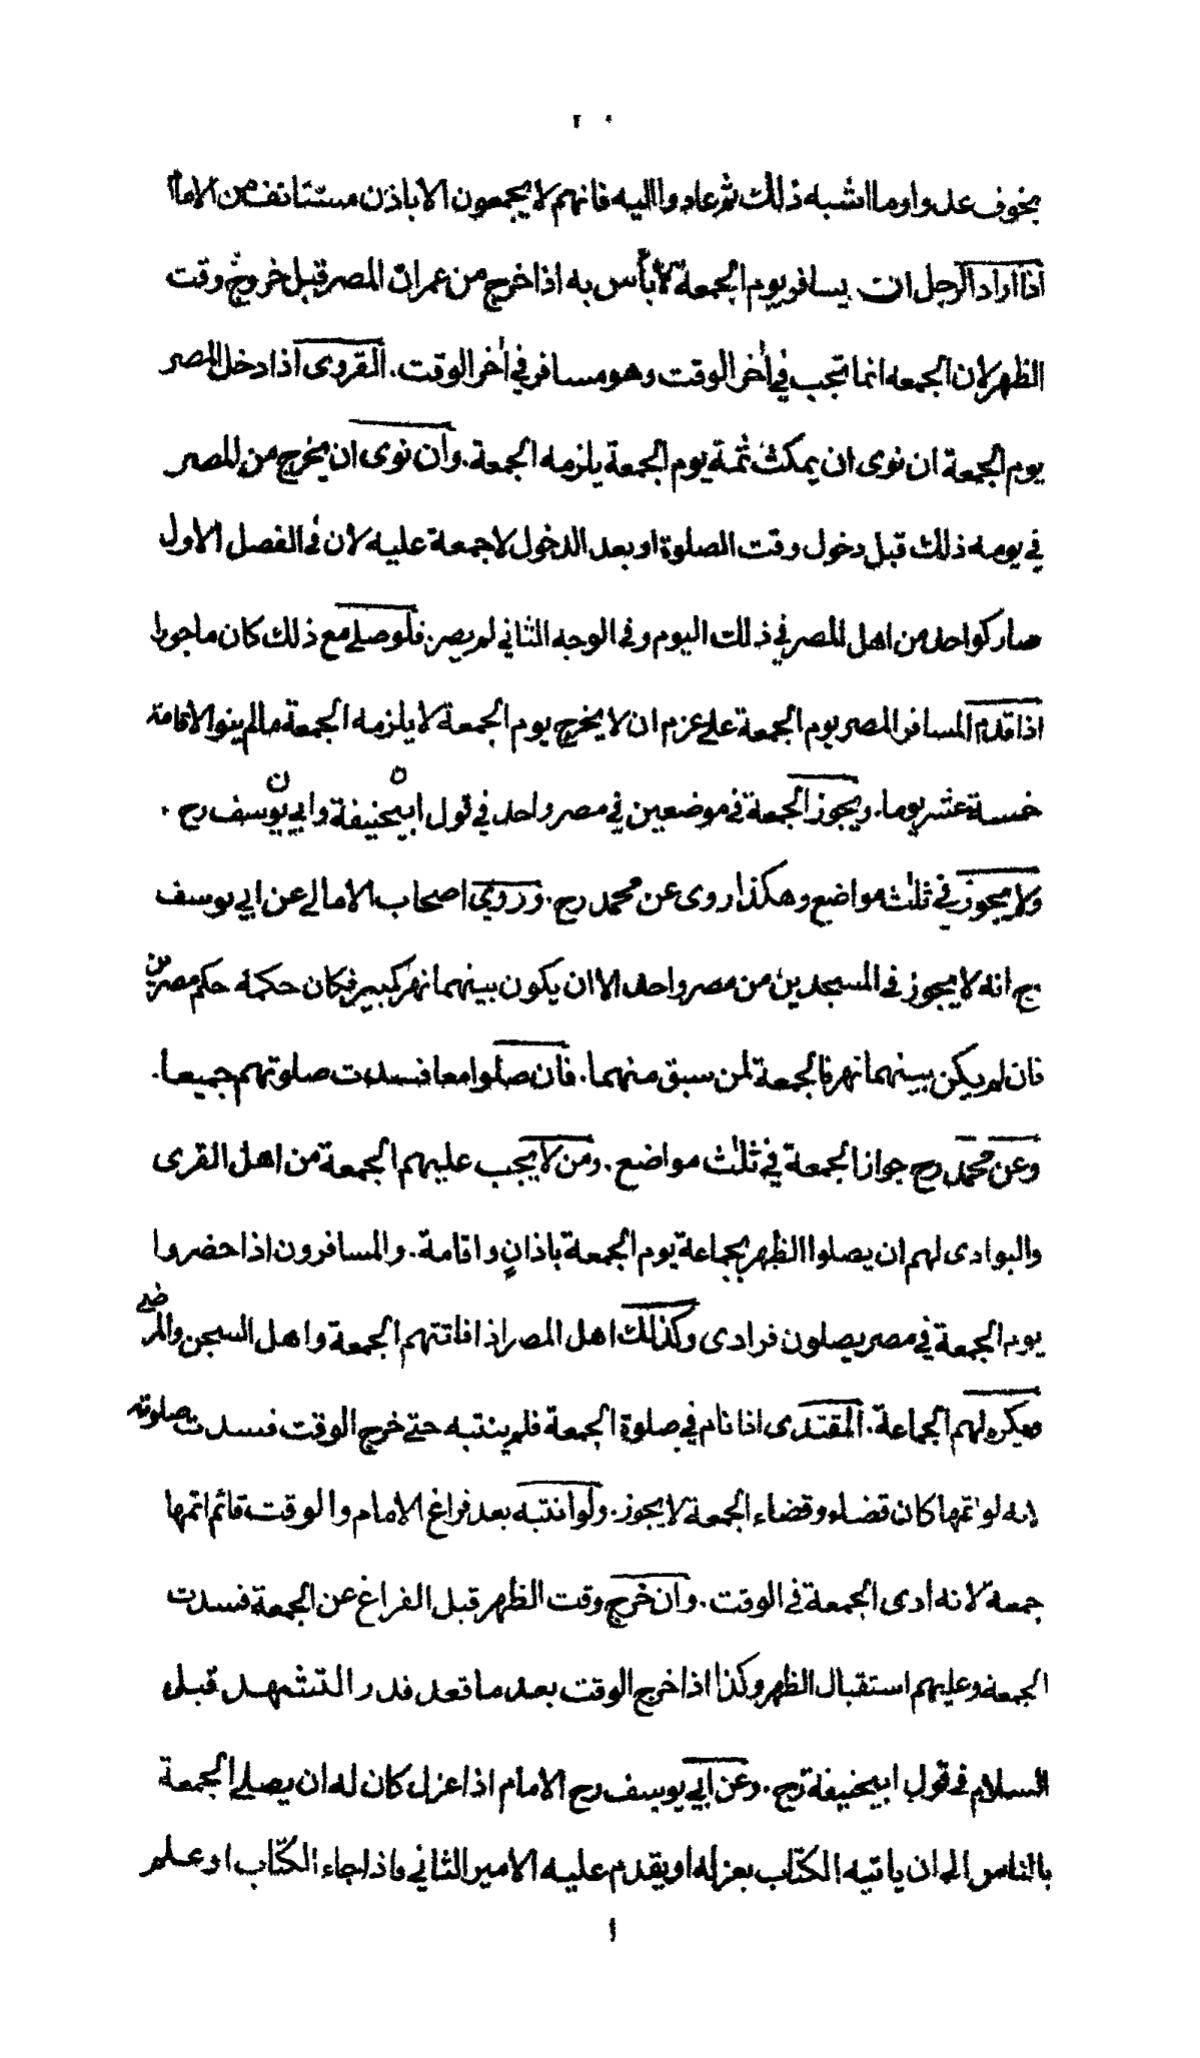 بخوف عدو او ما اشبه ذلك ثم عادوا اليه فانهم لا يجمعون الا باذن مستتانف من الامام
اذا اراد الرجل ان يسافر يوم الجمعة لا بأس به اذا خرج من عمران المصر قبل خروج وقت
الظهر لان الجمعه انما تجب في اخر الوقت وهو مسافر في اخر الوقت . القروى اذا دخل المصر
يوم الجمعة ان نوى ان يمكث ثمة يوم الجمعة يلزمه الجمعة . وان نوى ان يخرج من المصر
في يومه ذلك قبل دخول وقت الصلوة او بعد الدخول لا جمعة عليه لان في الفصل الاول
صار كواحد من اهل المصر في ذلك اليوم وفي الوجه الثاني لم يصر . فلو صلى مع ذلك كان ماجورا
اذا قدم المسافر المصر يوم الجمعة على عزم ان لا يخرج يوم الجمعة لا يلزمه الجمعة ما لم ينو الاقامة
خمسة عشر يوما . ويجوز الجمعة في موضعين في مصر واحد في قول ابيحنيفة وابي يوسف رح .
ولا يجوز في ثلث مواضع وهكذا روى عن محمد رح . وروى اصحاب الامالي عن ابي يوسف
رح انه لا يجوز في المسجدين من مصر واحد الا ان يكون بينهما نهر كبير فكان حكمه حكم مصرين
فان لم يكن بينهما نهر فالجمعة لمن سبق منهما . فان صلوا معا فسدت صلوتهم جميعا .
وعن محمد رح جواز الجمعة في ثلث مواضع . ومن لا يجب عليهم الجمعة من اهل القرى
والبوادى لهم ان يصلوا الظهر بجماعة يوم الجمعة باذان واقامة . والمسافرون اذا حضروا
يوم الجمعة في مصر يصلون فرادى وكذلك اهل المصر اذا فاتتهم الجمعة واهل السجن والمرضى
ويكره لهم الجماعة . المقتدى اذا نام في صلوة الجمعة فلم ينتبه حتى خرج الوقت فسدت صلوته
لانه لو اتمها كان قضاء وقضاء الجمعة لا يجوز . ولو انتبه بعد فراغ الامام والوقت قائم اتمها
جمعة لانه ادى الجمعة في الوقت . وان خرج وقت الظهر قبل الفراغ عن الجمعة فسدت
الجمعة وعليهم استقبال الظهر وكذا اذا خرج الوقت بعد ما قعد قدر التشهد قبل
السلام في قول ابيحنيفة رح . وعن ابي يوسف رح الامام اذا عزل كان له ان يصلي الجمعة
بالناس الى ان ياتيه الكتاب بعزله او يقدم عليه الامير الثاني واذا جاء الكتاب او علم